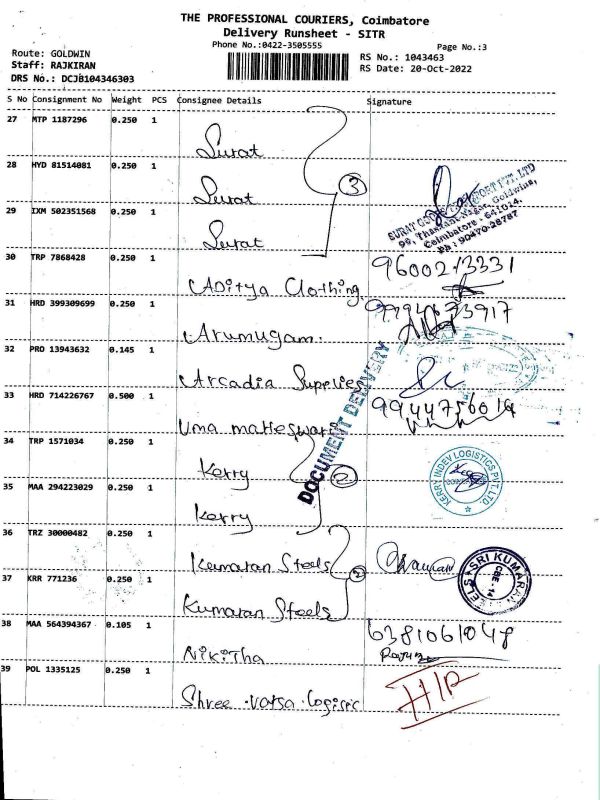 THE PROFESSIONAL COURIERS, Coimbatore
Delivery Runsheet - SITR
Phone No.:0422-3505555
Page No.:3
Route: GOLDWIN
Staff: RAJKIRAN
DRS No.: DCJB104346303
RS No.: 1043463
RS Date: 20-Oct-2022
S No Consignment No Weight PCS Consignee Details Signature
27 MTP 1187296 0.250 1
Surat
28 HYD 81514081 0.250 1
Surat
3
29 IXM 502351568 0.250 1
Surat
99, Thanthai Nagar, Goldwins,
Coimbatore - 641014.
Ph : 90470-28787
30 TRP 7868428 0.250 1
Aditya Clothing
9600213331
31 HRD 399309699 0.250 1
Arumugam.
32 PRO 13943632 0.145 1
Arcadia Supplies
DOCUMENT DELIVERY
33 HRD 714226767 0.500 1
Uma maheswari
34 TRP 1571034 0.250 1
Kerry
2
KERRY INDEV LOGISTICS PVT.LTD.
35 MAA 294223029 0.250 1
Kerry
36 TRZ 30000482 0.250 1
Kumaran Steels
2
SRI KUMARAN
CBE - 14
37 KRR 771236 0.250 1
Kumaran Steels
38 MAA 564394367 0.105 1
Nikitha
6381061048
39 POL 1335125 0.250 1
Shree .vatsa .logistic